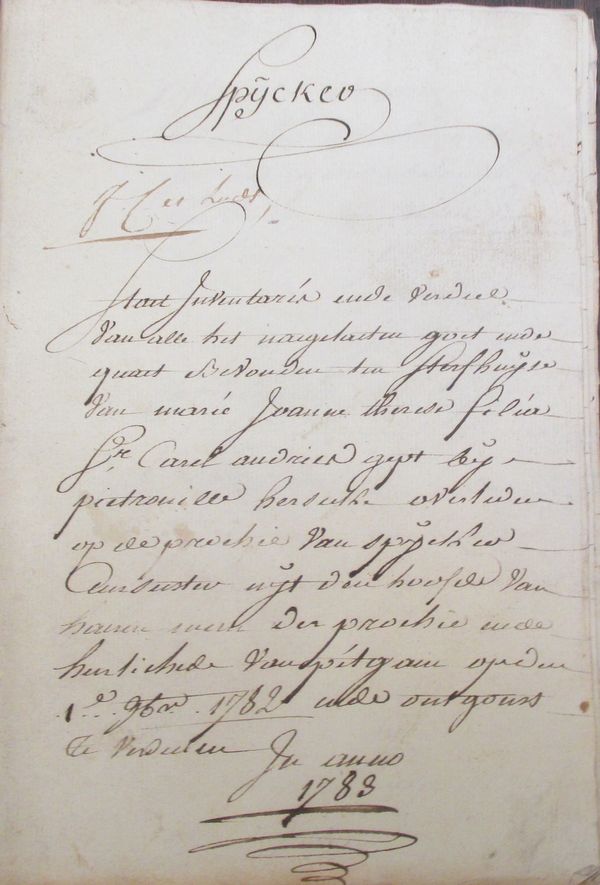 Spÿcker
Staet Inventaris ende verdeel
van alle het naegelaeten goet ende
quaet bevonden ten sterfhuÿse
van marie Joanne therese filia
Sr. Carel andries gept bÿ
pietronille herseke overleden
op de prochie van spÿcker
aensuster uÿt den hoofde van
haeren der prochie ende
herlichede van pitgam op den
1.e 9bre. 1782 ende ontgonst
te verdeelen
In anno
1783